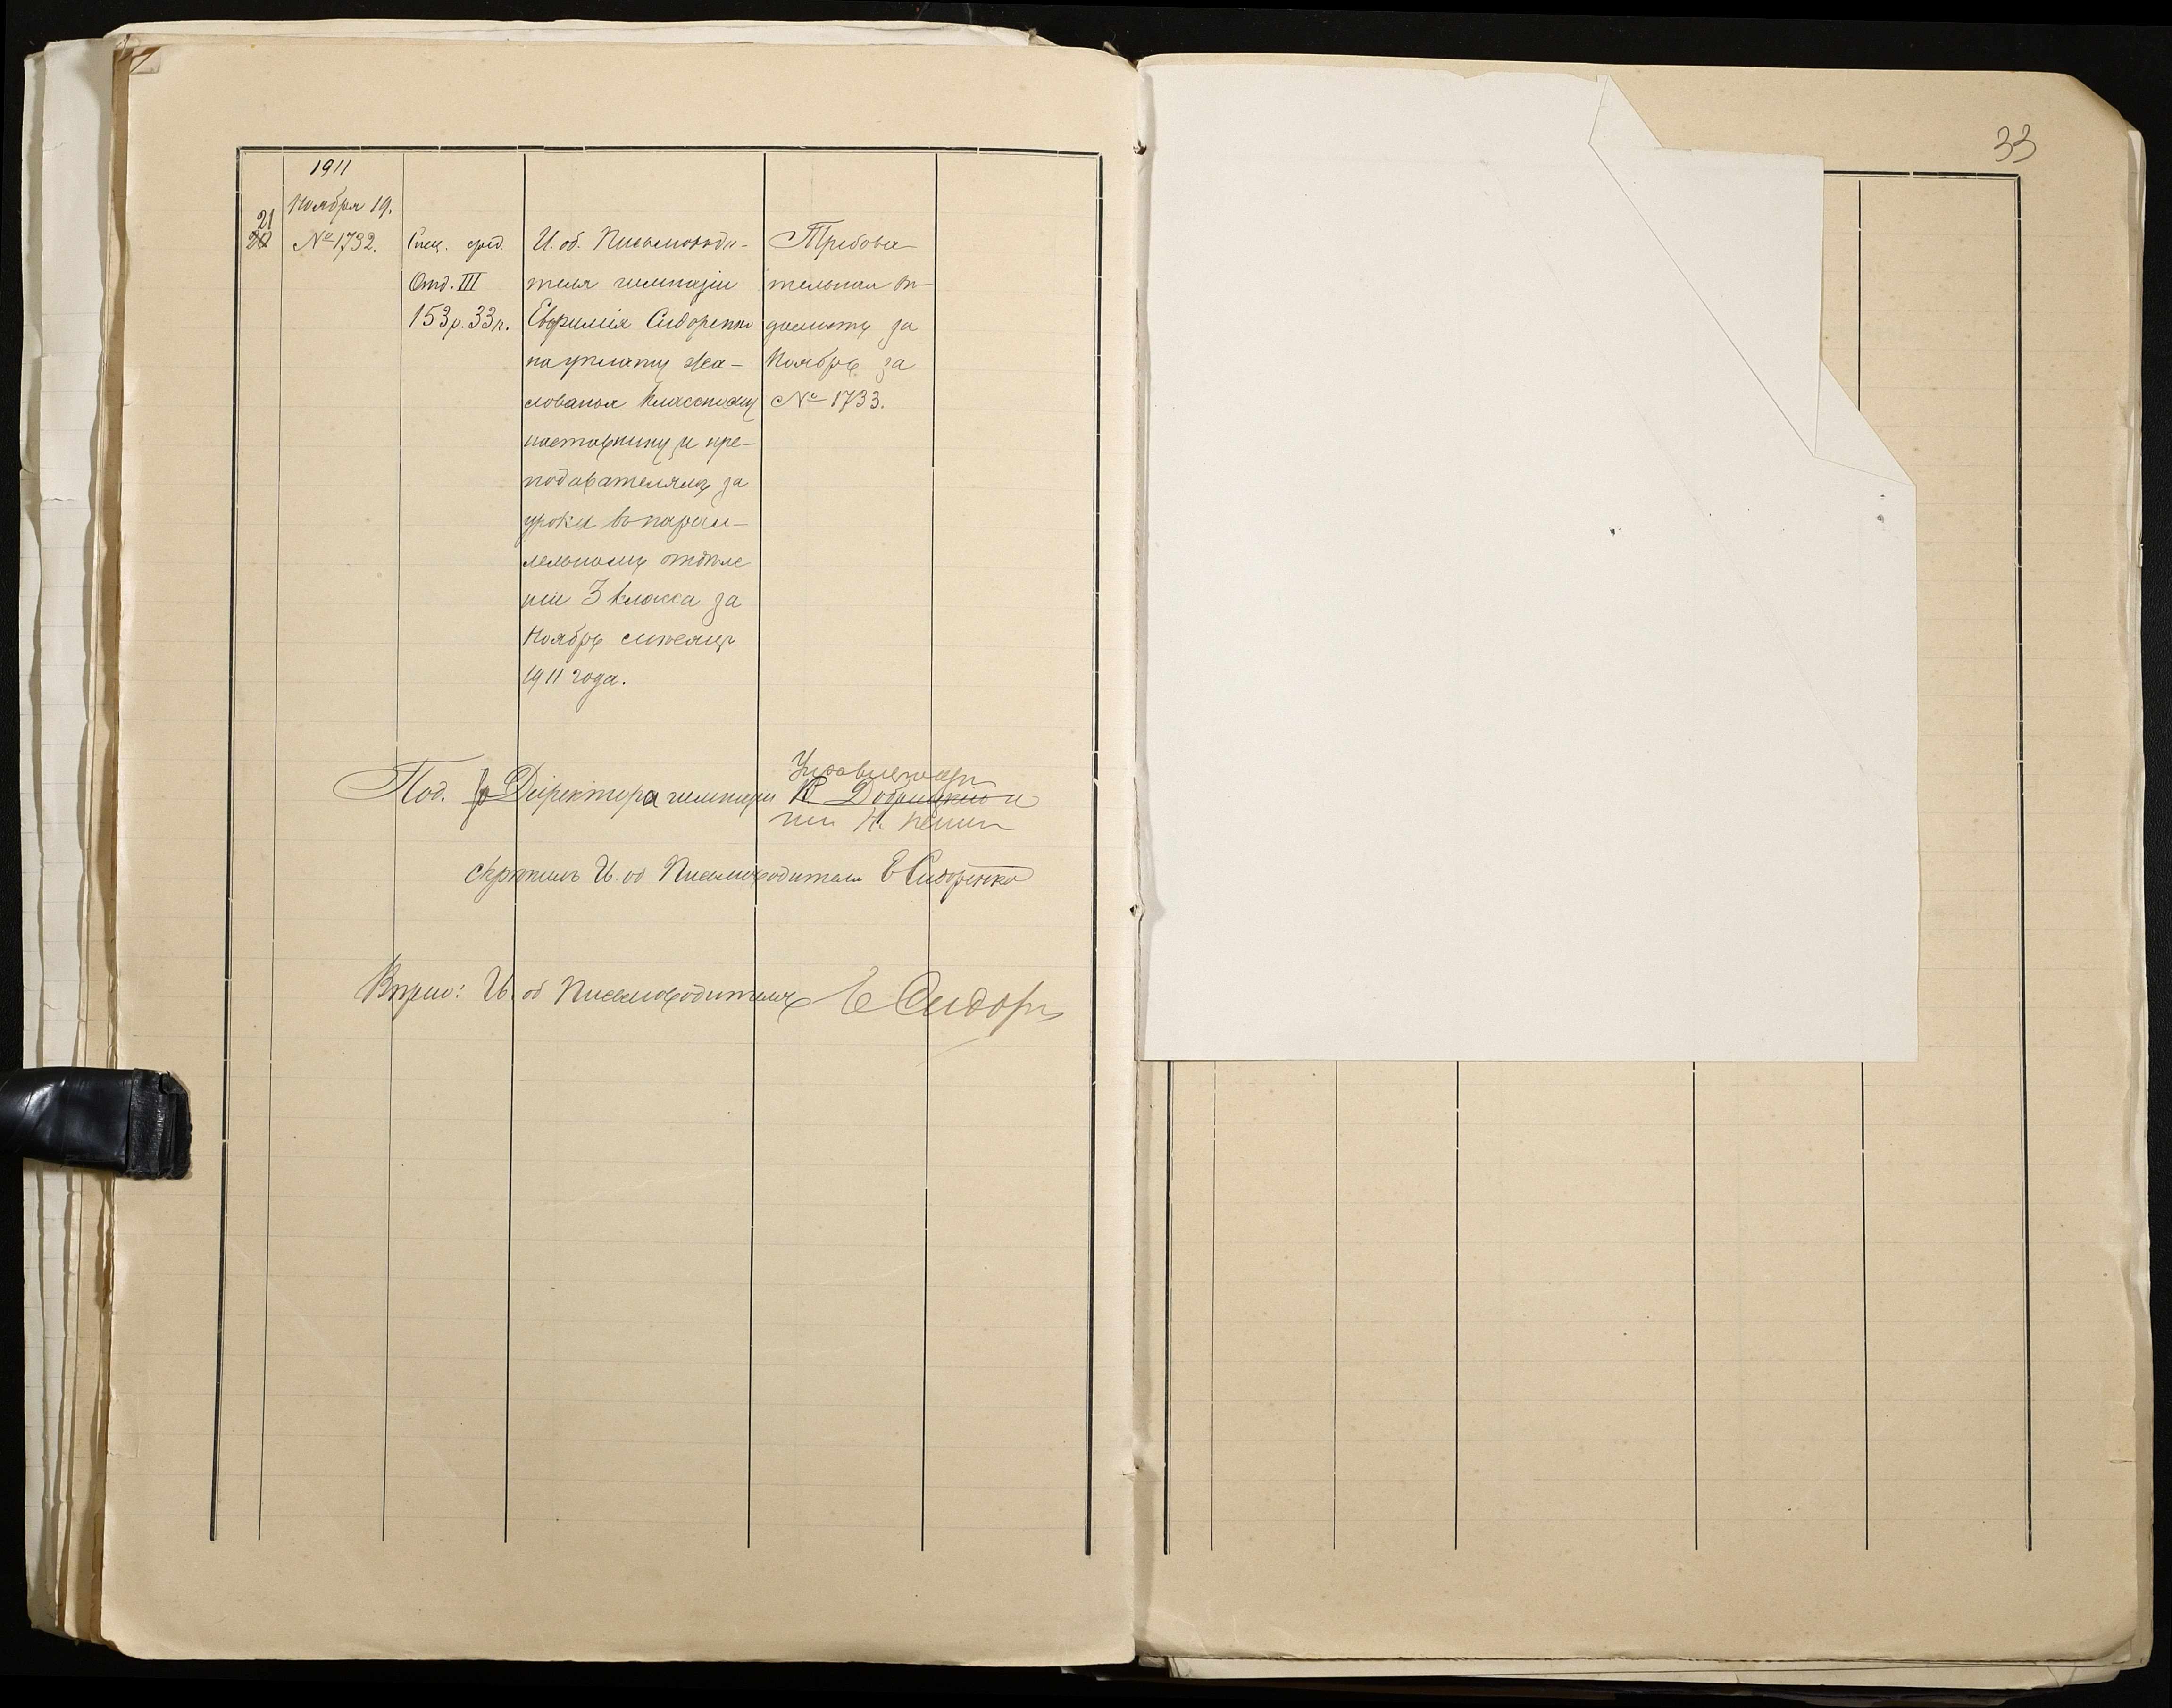 33
1911
Ноября 19.
21
20
№ 1732.
Спец. сред.
Отд. III
153 р. 33 к.
И. об. Письмоводи-
теля гимназіи
Евфимія Сидоренко
на уплату жа-
лованья классному
наставнику и пре-
подавателямъ за
уроки въ парал-
лельномъ отдѣле
ніи 3 класса за
Ноябрь мѣсяцъ
1911 года.
Требова-
тельная вѣ-
домость за
Ноябрь за
№ 1733.
Под. Директора гимназіи К. Добрицкій
скрѣпилъ И. об Письмоводителя Е Сидоренко
Вѣрно: И. об Письмоводителя Е Сидор